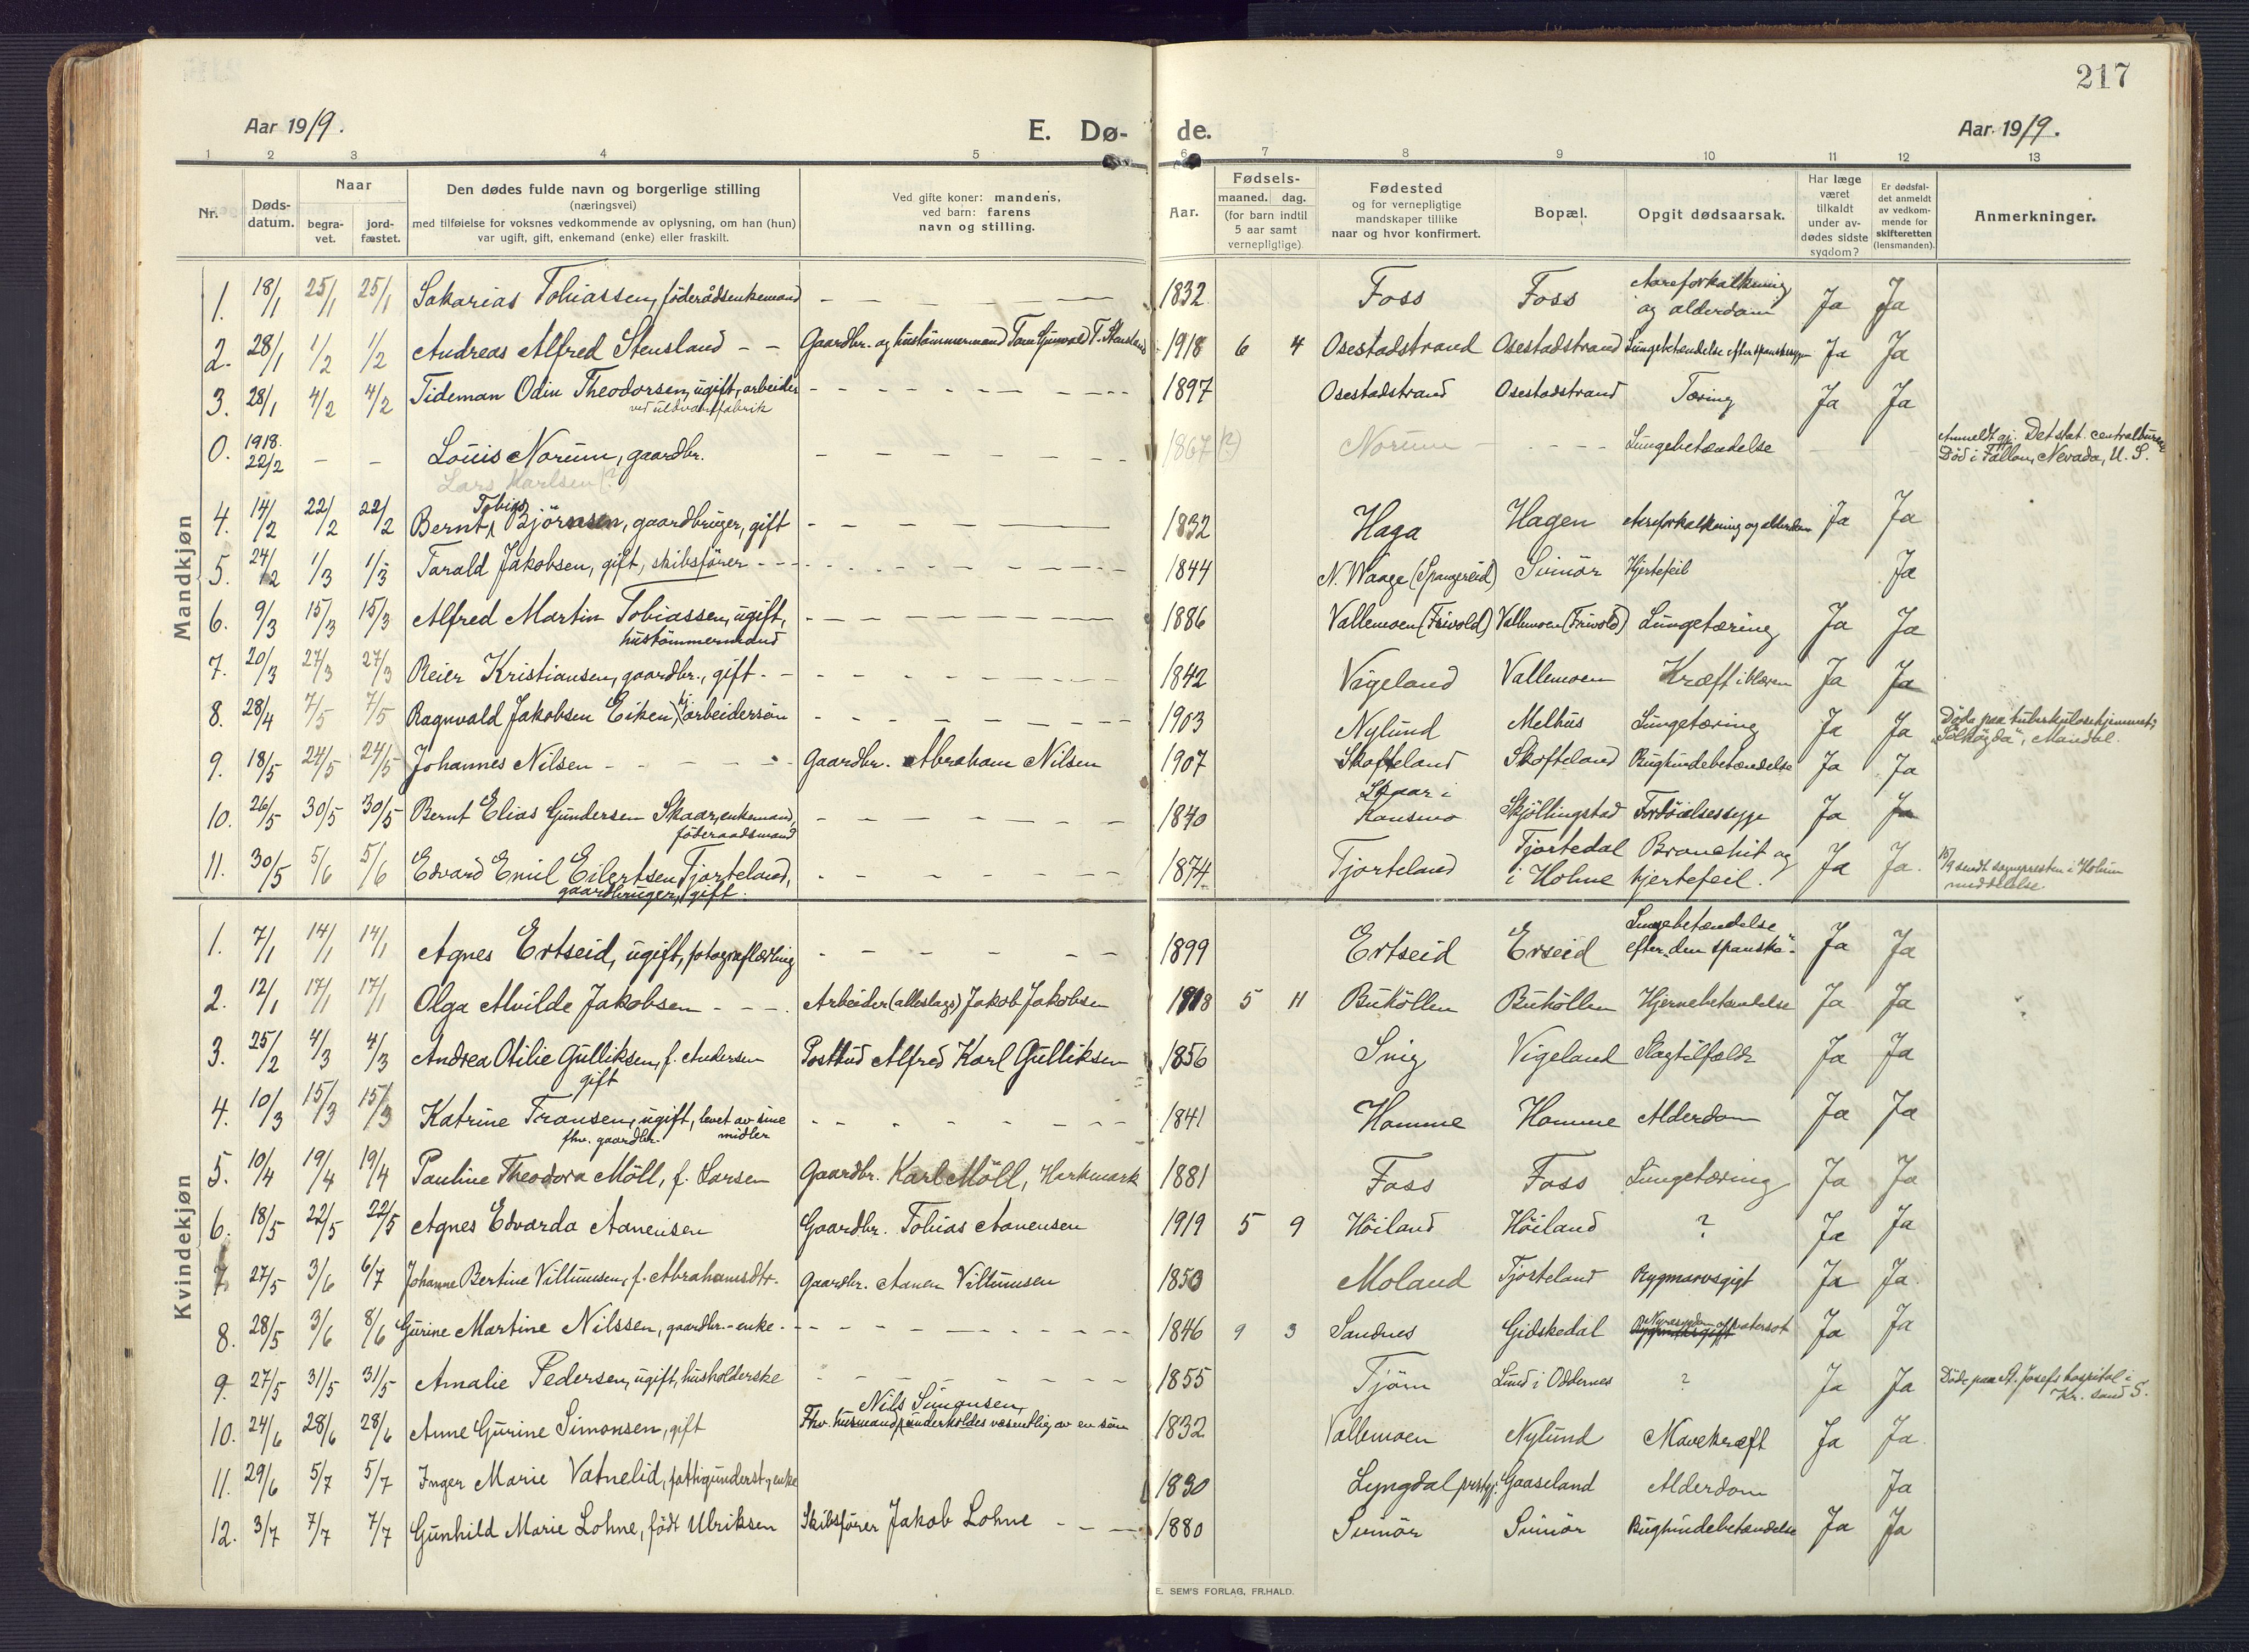 217
Aar 1919.
E. Dø-
de.
Aar 1919.
1 2 3 4 5 6 7 8 9 10 11 12 13
Nr.
Døds-
datum.
Naar
begra-
vet.
jord-
fæstet.
Den dødes fulde navn og borgerlige stilling
(næringsvei)
med tilføielse for voksnes vedkommende av oplysning, om han (hun)
var ugift, gift, enkemand (enke) eller fraskilt.
Ved gifte koner: mandens,
ved barn: farens
navn og stilling.
Aar.
Fødsels-
maaned. dag.
(for barn indtil
5 aar samt
vernepligtige)
Fødested
og for vernepligtige
mandskaper tillike
naar og hvor konfirmert.
Bopæl.
Opgit dødsaarsak.
Har læge
været
tilkaldt
under av-
dødes sidste
sygdom?
Er dødsfal-
det anmeldt
av vedkom-
mende for
skifteretten
(lensmanden).
Anmerkninger.
Mandkjøn
1. 18/1 25/1 25/1 Sakarias Tobiassen, föderådsenkemand 1832 Foss Foss Aareforkalkning og alderdom Ja Ja
2. 28/1 1/2 1/2 Andreas Alfred Stensland Gaardbr. og hustömmermand 1918 6 4 Osestadstrand Osestadstrand Lungebetændelse efter spanskesyge Ja Ja
3. 28/1 4/2 4/2 Tideman Odin Theodorsen, ugift, arbeider ved uldvarefabrik 1897 Osestadstrand Osestadstrand Tæring Ja Ja
0. 1918. 22/2 - - Louis Norum, gaardbr. 1867 (?) Norum Lungebetændelse Anmeldt gj. Det stat. centralbureau Död i Fallon, Nevada, U. S.
Lars Karlsen (?)
4. 14/2 22/2 22/2 Bernt Tobias Björnsen, gaardbruger, gift 1832 Haga Hagen Aareforkalkning og alderdom Ja Ja
5. 24/2 1/3 1/3 Tarald Jakobsen, gift, skibsförer 1844 N. Waage (Spangereid) Svinör Hjertefeil Ja
6. 9/3 15/3 15/3 Alfred Martin Tobiassen, ugift, hustömmermand 1886 Vallemoen (Frivold) Vallemoen (Frivold) Lungetæring Ja Ja
7. 20/3 27/3 27/3 Reier Kristiansen, gaardbr., gift 1842 Vigeland Vallemoen Kræft i blæren Ja Ja
8. 28/4 7/5 7/5 Ragnvald Jakobsen Eiken, arbeidersön 1903 Nylund Melhus Lungetæring Ja Ja Döde paa tuberkulosehjemmet "Solhögda", Mandal.
9. 18/5 24/5 24/5 Johannes Nilsen Gaardbr. Abraham Nilsen 1907 Skofteland Skofteland Bughindebetændelse Ja Ja
10. 26/5 30/5 30/5 Bernt Elias Gundersen Skaar, enkemand, föderaadsmand 1840 Skaar i Konsmo Skjöllingstad Fordöielsessyge Ja Ja
11. 30/5 5/6 5/6 Edvard Emil Eilertsen Tjorteland, gaardbruger, gift. 1874 Tjorteland Tjortedal i Holme Bronchit og hjertefeil. Ja Ja. sendt sognepresten i Holum meddelelse.
Kvindekjøn
1. 7/1 14/1 14/1 Agnes Ertseid, ugift, fotograflærling 1899 Ertseid Erseid Lungebetændelse efter den spanske. Ja Ja
2. 12/1 17/1 17/1 Olga Alvilde Jakobsen Arbeider (alleslags) Jakob Jakobsen 1918 5 11 Buhöllen Buhöllen Hjernebetændelse Ja Ja
3. 25/2 4/3 4/3 Andrea Otilie Gulliksen, f. Andersen gift Postbud Alfred Karl Gulliksen 1856 Snig Vigeland Slagtilfælde Ja Ja
4. 10/3 15/3 15/3 Katrine Fransen, ugift, levet av sine midler fhv. gaardbr. 1841 Homme Homme Alderdom Ja Ja
5. 10/4 19/4 19/4 Pauline Theodora Möll, f. Larsen Gaardbr. Karl Möll, Harkmark 1881 Foss Foss Lungetæring Ja Ja
6. 18/5 22/5 22/5 Agnes Edvarda Aanensen Gaardbr. Tobias Aanensen 1919 5 9 Höiland Höiland ? Ja Ja
7 27/5 3/6 6/7 Johanne Bertine Villumsen, f. Abrahamsdtr. Gaardbr. Aanen Villumsen 1850 Moland Tjorteland Rygmarvsgigt Ja Ja
8. 28/5 3/6 8/6 Gurine Martine Nilssen, gaardbr.-enke 1846 9 3 Sandnes Gidskedal Ja Ja
9. 27/5 31/5 31/5 Amalie Pedersen, ugift, husholderske 1855 Tjöm Lund i Oddernes ? Ja Ja Döde paa St. Josefs hospital i Kr. sand S.
10. 24/6 28/6 28/6 Anne Gurine Simonsen, gift Fhv. husmand Nils Simonsen, underholdes væsentlig av en sön 1832 Vallemoen Nylund Mavekræft Ja Ja
11. 29/6 5/7 5/7 Inger Marie Vatnelid, fattigunderst., enke 1830 Lyngdal prstgj. Gaaseland Alderdom Ja
12. 3/7 7/7 7/7 Gunhild Marie Lohne, födt Ulriksen Skibsförer Jakob Lohne 1880 Svinör Svinör Bughindebetændelse Ja Ja
E. SEM'S FORLAG, FR.HALD.